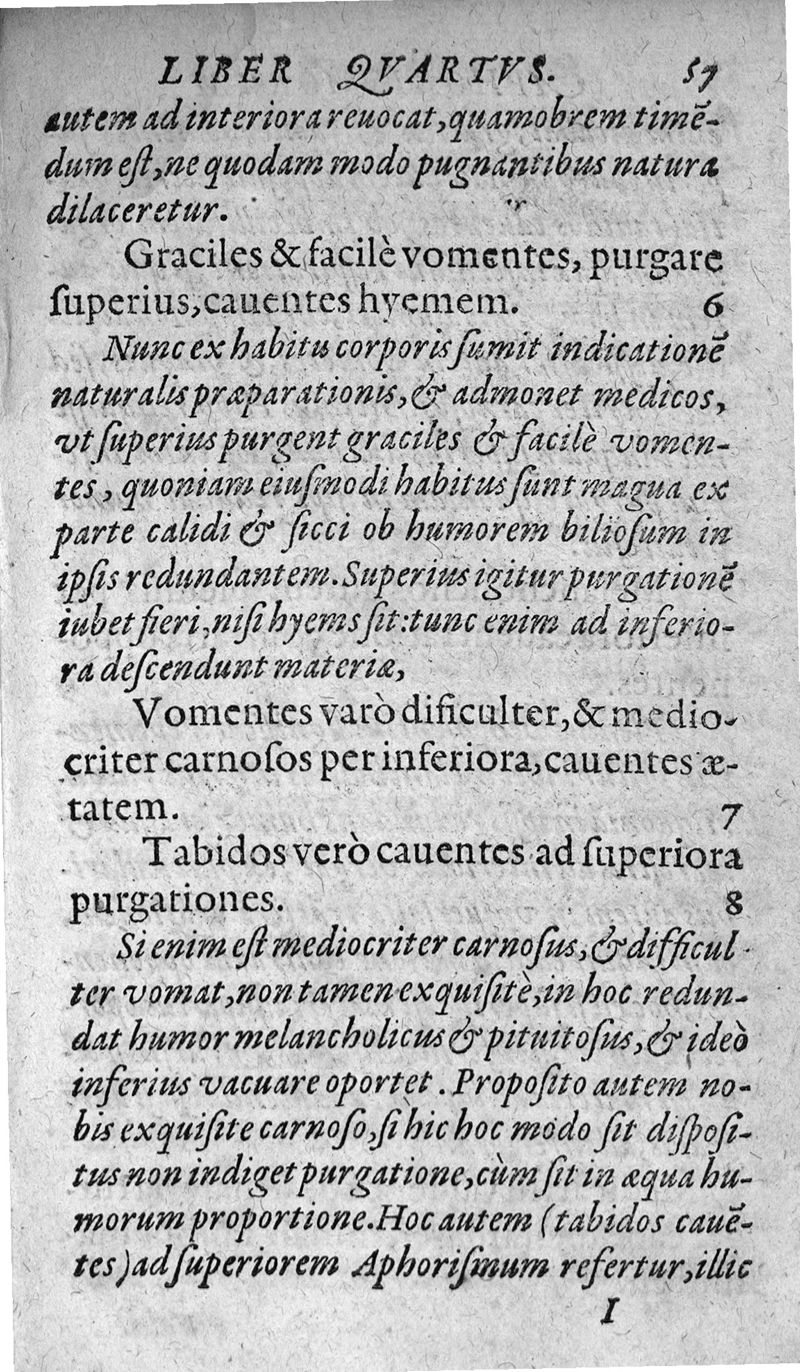 LIBER QVARTVS. 57
autem ad interiora reuocat, quamobrem timē-
dum eſt, ne quodam modo pugnantibus natura
dilaceretur.
Graciles & facilè vomentes, purgare
ſuperius, cauentes hyemem. 6
Nunc ex habitu corporis ſumit indicationē
naturalis præparationis, & admonet medicos,
vt ſuperius purgent graciles & facilè vomen-
tes, quoniam eiuſmodi habitus ſunt magua ex
parte calidi & ſicci ob humorem bilioſum in
ipſis redundantem. Superius igitur purgationē
iubet fieri, niſi hyems ſit: tunc enim ad inferio-
ra deſcendunt materiæ,
Vomentes varò dificulter, & medio-
criter carnoſos per inferiora, cauentes æ-
tatem. 7
Tabidos verò cauentes ad ſuperiora
purgationes. 8
Si enim eſt mediocriter carnoſus, & difficul
ter vomat, non tamen exquiſitè, in hoc redun-
dat humor melancholicus & pituitoſus, & ideò
inferius vacuare oportet. Propoſito autem no-
bis exquiſite carnoſo, ſi hic hoc modo ſit diſpoſi-
tus non indiget purgatione, cùm ſit in æqua hu-
morum proportione. Hoc autem (tabidos cauē-
tes) ad ſuperiorem Aphoriſmum refertur, illic
I